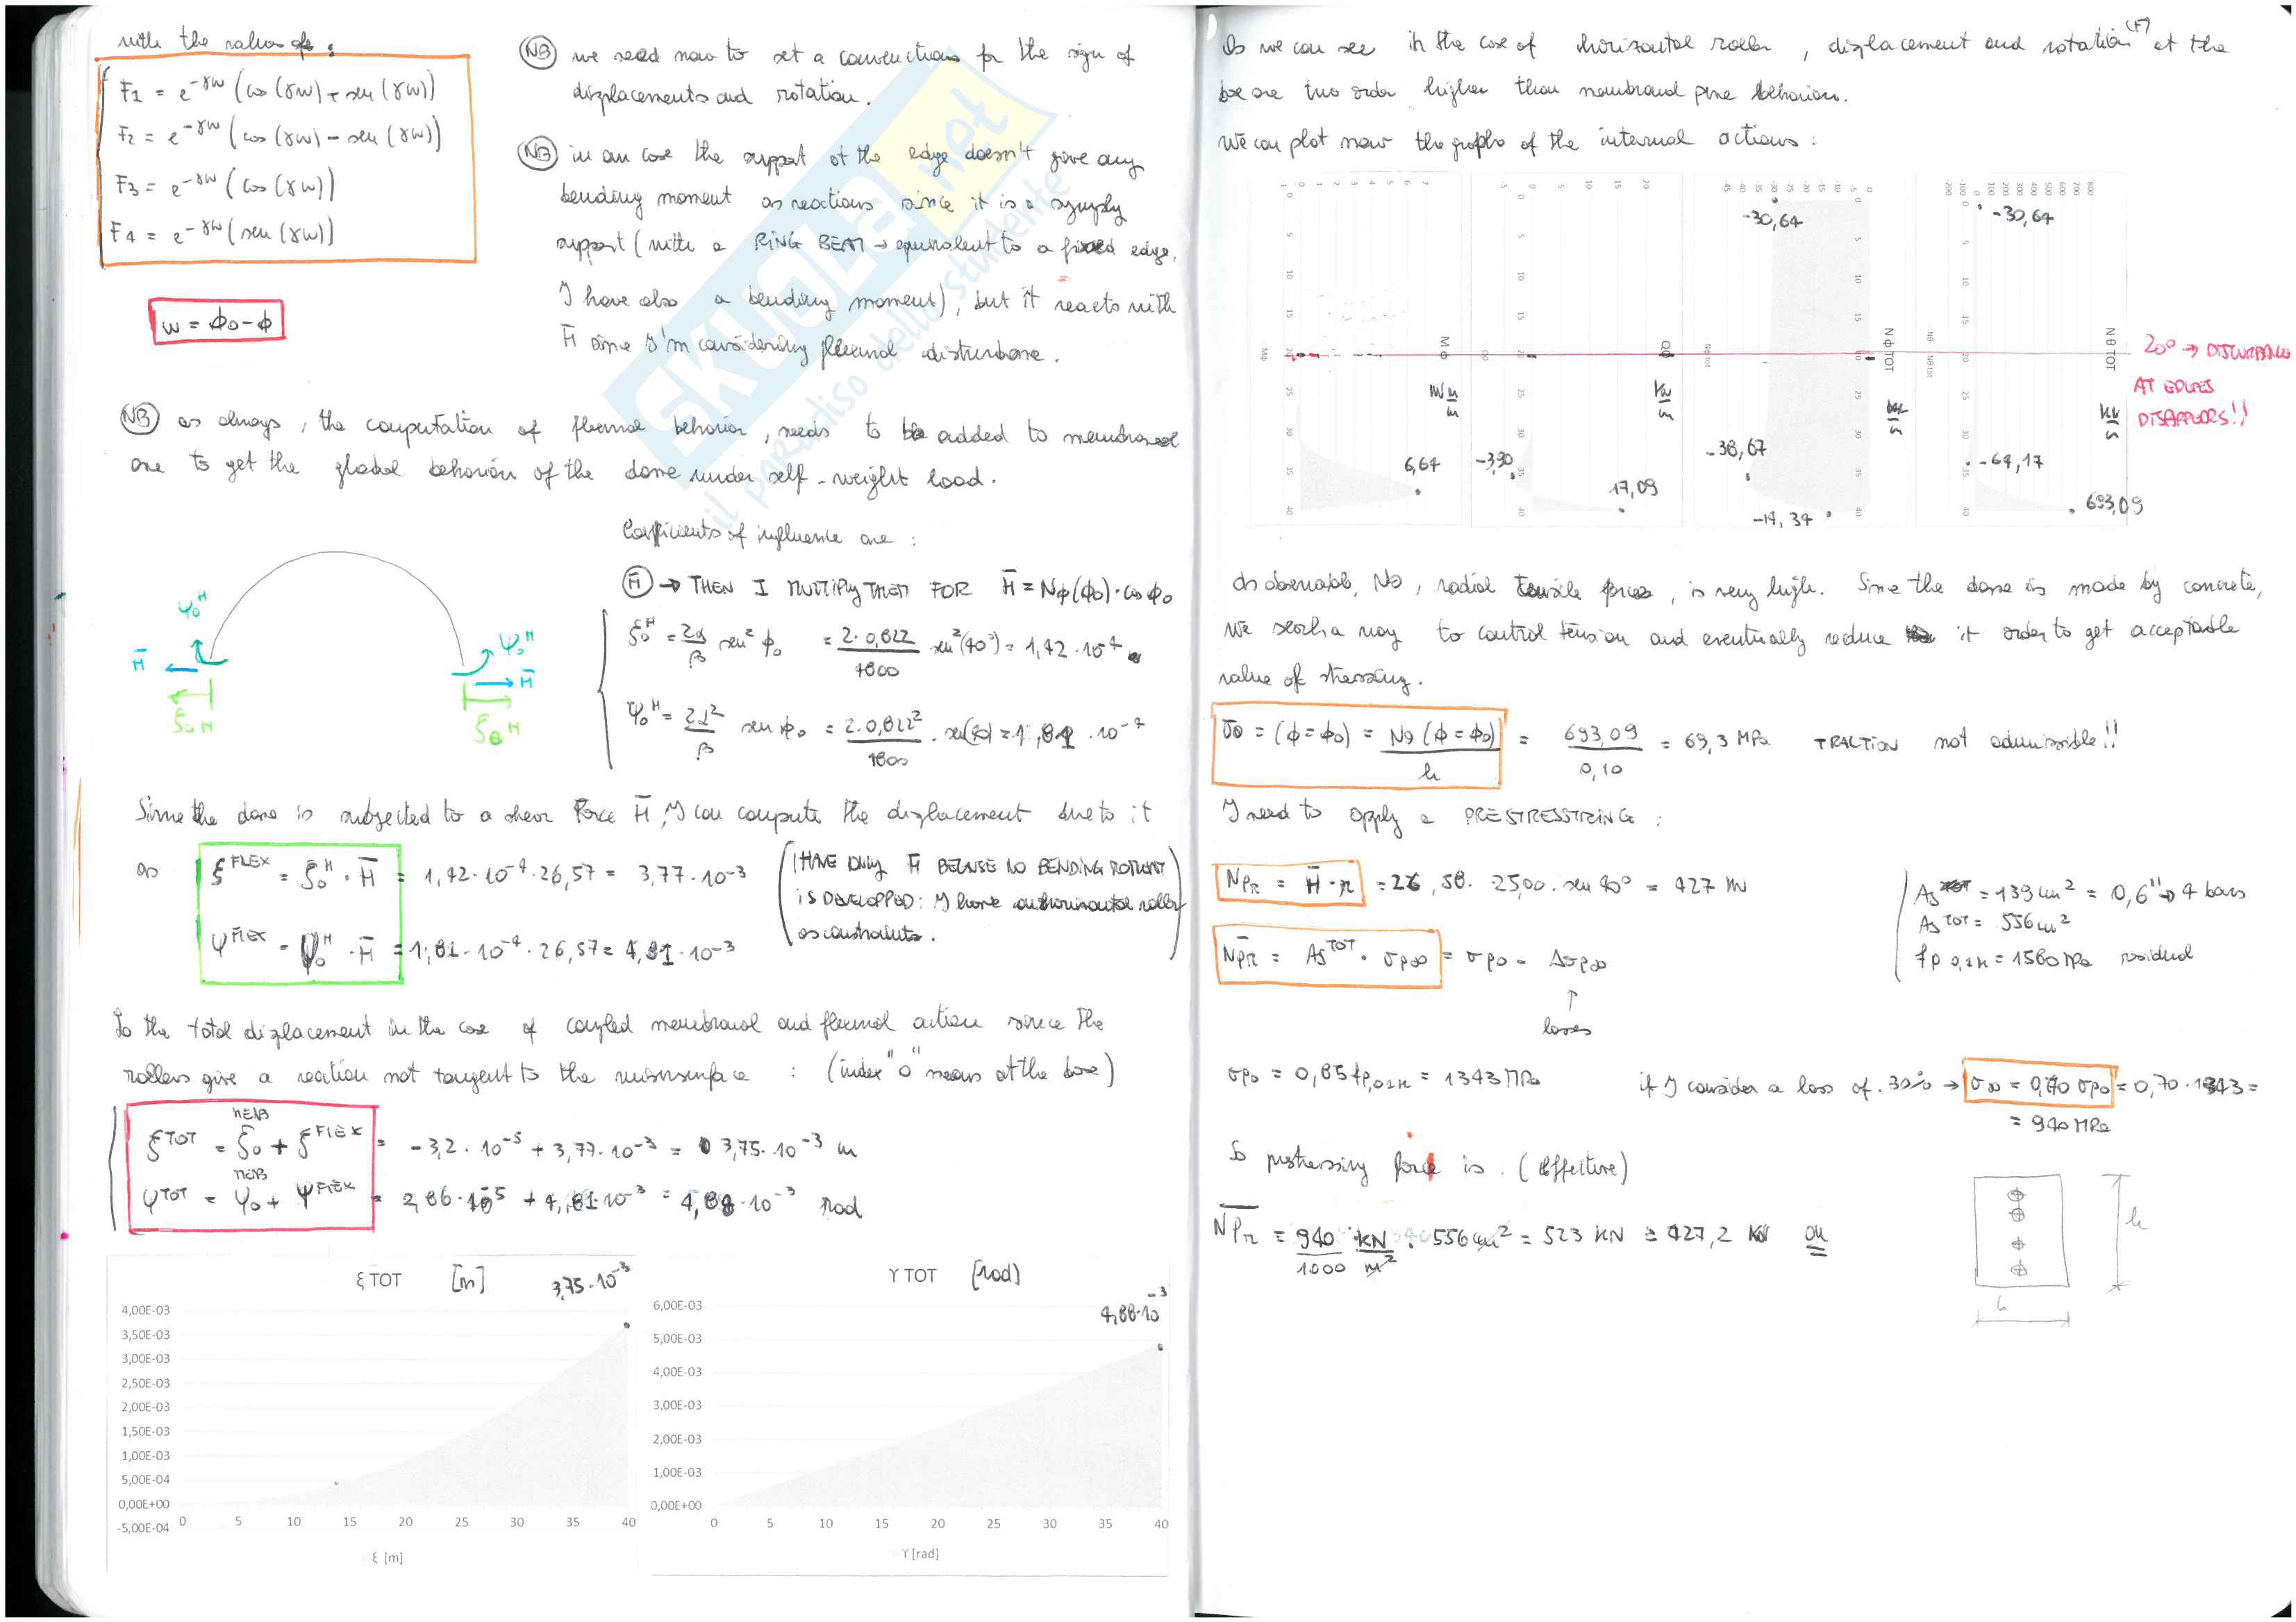 with the values of:
F1 = e^-γw (cos (γw) + sen (γw))
F2 = e^-γw (cos (γw) - sen (γw))
F3 = e^-γw (cos (γw))
F4 = e^-γw (sen (γw))
w = ϕ0 - ϕ
NB we need now to set a convection for the sign of
displacements and rotation.
NB in our case the support at the edge doesn't give any
bending moment as reactions since it is a symply
support (with a RING BEAM → equivalent to a fixed edge,
I have also a bending moment), but it reacts with
H̄ since I'm considering flexural disturbance.
NB as always, the computation of flexural behavior, needs to be added to membranal
one to get the global behavior of the dome under self-weight load.
Coefficients of influence are:
H̄ → THEN I MULTIPLY THEM FOR H̄ = Nϕ(ϕ0)·cos ϕ0
ξ0^H = 2α/β sen² ϕ0 = 2·0,822/4800 sen²(40°) = 1,42·10^-4
ψ0^H = 2α²/β sen ϕ0 = 2·0,822²/4800 · sen(40) = 1,81·10^-4
ψ0^H
H̄
ξ0^H
ψ0^H
H̄
ξ0^H
Since the dome is subjected to a shear force H̄, I can compute the displacement due to it
as ξ^FLEX = ξ0^H · H̄ = 1,42·10^-4·26,57 = 3,77·10^-3
ψ^FLEX = ψ0^H · H̄ = 1,81·10^-4·26,57 = 4,81·10^-3
(I HAVE ONLY H̄ BECAUSE NO BENDING MOMENT
IS DEVELOPPED: I have an horizontal roller
as constraints.)
So the total displacement in the case of coupled membranal and flexural action since the
rollers give a reaction not tangent to the : (index "0" means at the base)
ξ^TOT = ξ0^MEMB + ξ^FLEX = -3,2·10^-5 + 3,77·10^-3 = 3,75·10^-3 m
ψ^TOT = ψ0^MEMB + ψ^FLEX = 2,86·10^-5 + 4,81·10^-3 = 4,88·10^-3 rad
ξ TOT [m] 3,75·10^-3
4,00E-03
3,50E-03
3,00E-03
2,50E-03
2,00E-03
1,50E-03
1,00E-03
5,00E-04
0,00E+00
-5,00E-04
0 5 10 15 20 25 30 35 40
ξ [m]
ϒ TOT [rad] 4,88·10^-3
6,00E-03
5,00E-03
4,00E-03
3,00E-03
2,00E-03
1,00E-03
0,00E+00
0 5 10 15 20 25 30 35 40
ϒ [rad]
As we can see in the case of horizontal roller, displacement and rotation (F) at the
base are two order higher than membranal pure behavior.
We can plot now the graphs of the internal actions:
-1 0 1 2 3 4 5 6 7
0 5 10 15 20 25 30 35 40
Mϕ
Mϕ
6,64
-5 0 5 10 15 20
0 5 10 15 20 25 30 35 40
Qϕ
kN/m
-3,90
17,09
-45 -40 -35 -30 -25 -20 -15 -10 -5 0
0 5 10 15 20 25 30 35 40
Nϕ TOT
Nϕ tot
-30,64
-38,67
-14,34
-200 -100 0 100 200 300 400 500 600 700 800
0 5 10 15 20 25 30 35 40
Nθ TOT
Nθ Nθ tot
-30,64
-64,17
693,09
20° → DISTURBANCE
AT EDGES
DISAPPEARS!!
As observable, Nθ, radial tensile force, is very high. Since the dome is made by concrete,
we search a way to control tension and eventually reduce it order to get acceptable
value of stressing.
σθ = (ϕ = ϕ0) = Nθ (ϕ = ϕ0)/h = 693,09/0,10 = 69,3 MPa TRACTION not admissible!!
I need to apply a PRESTRESSTRING:
NPR = H̄·r = 26,58 · 25,00 · sen 40° = 427 kN
N̄PR = As^TOT · σp∞ = σp0 - Δσp∞
↑
losses
As = 139 cm² = 0,6" → 4 bars
As^TOT = 556 cm²
fp 0,2k = 1580 MPa residual
σp0 = 0,85 fp,0.2k = 1343 MPa
if I consider a loss of 30% → σ∞ = 0,70 σp0 = 0,70 · 1343 =
= 940 MPa
So prestressing force is. (effective)
N̄PR = 940/1000 kN/m² · 556 cm² = 523 kN ≥ 427,2 kN OK
h
b
SKUOLA.net
il paradiso dello studente